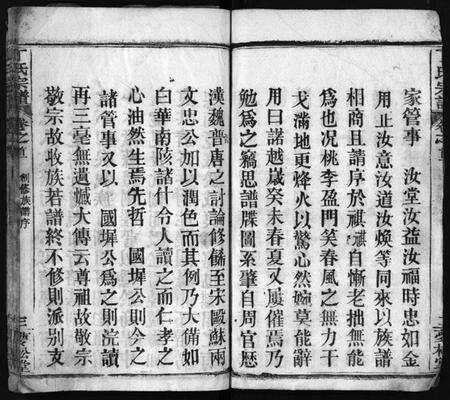 丁氏宗譜
卷之首
家管事　汝堂汝益汝福時忠如金
用止汝意汝道汝煥等同來以族譜
相商且請序於祺祺自慚老拙無能
為也況桃李盈門笑春風之無力干
戈滿地更烽火以驚心然婉莫能辭
用曰諾越歲癸未春夏又屢催焉乃
勉為之竊思譜牒圖系肇自周官歷
漢魏晉唐之討論修儲至宋歐蘇兩
文忠公加以潤色而其例乃大備如
白華南陔諸什令人讀之而仁孝之
心油然生焉先哲　國墀公則今之
諸管事又以　國墀公為之則浣讀
再三毫無遺憾大傳云尊祖故敬宗
敬宗故收族若譜終不修則派別支
丁氏宗譜
卷之首
創修族譜序
三
松堂